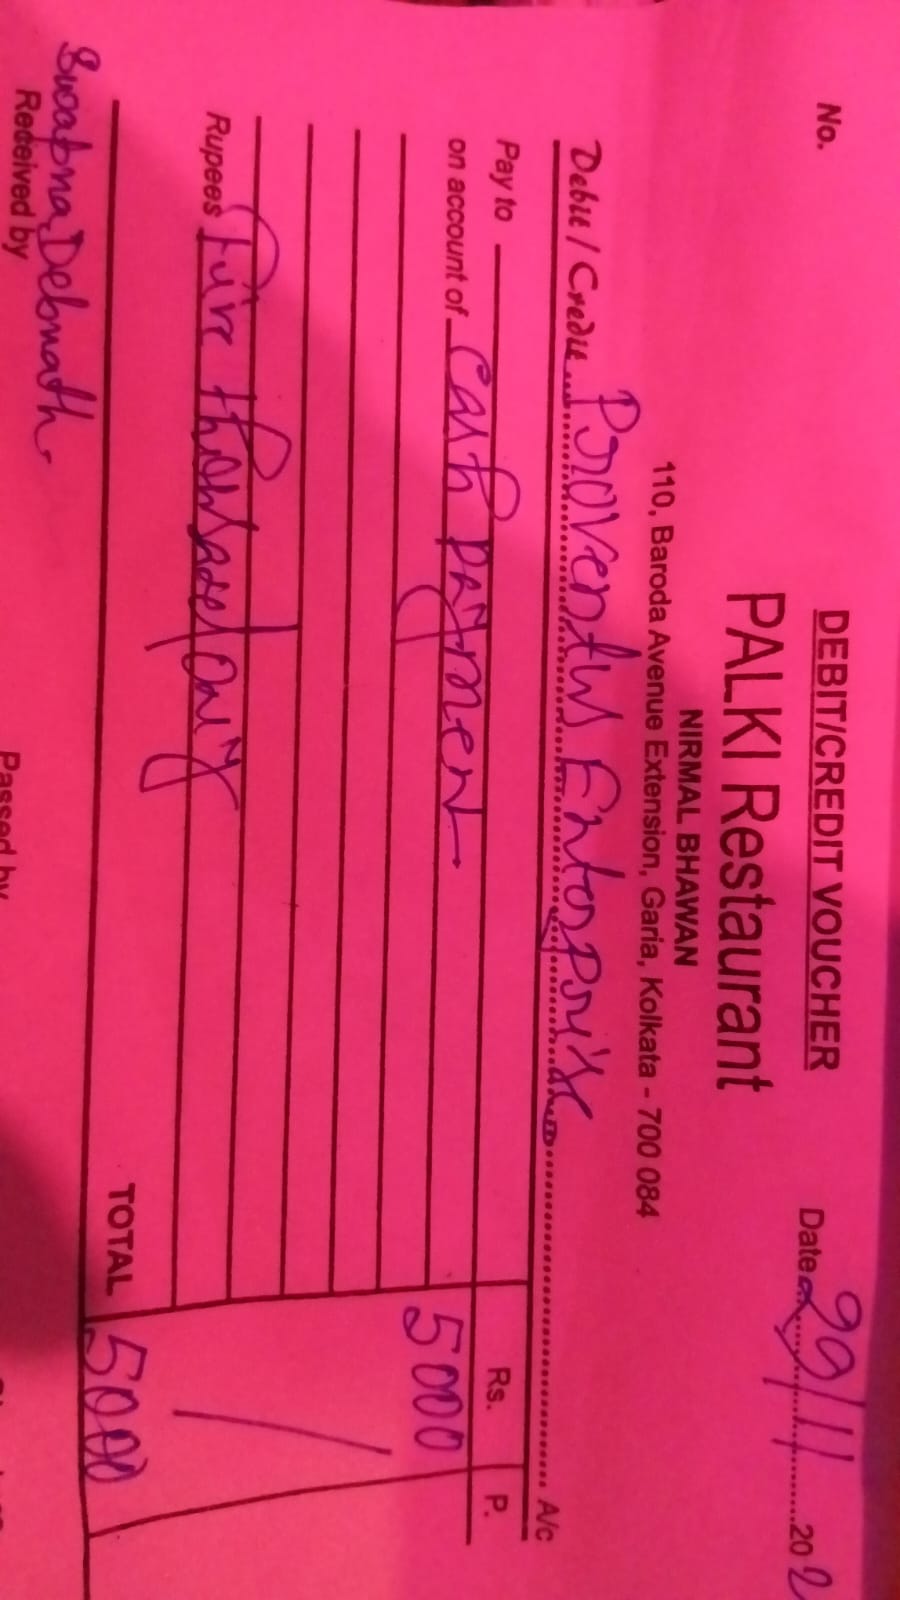 DEBIT/CREDIT VOUCHER
No. Date 29/11 202
PALKI Restaurant
NIRMAL BHAWAN
110, Baroda Avenue Extension, Garia, Kolkata - 700 084
Debit / Credit Proventus Enterprise A/c
Pay to Rs. P.
on account of Cash payment 5000
Rupees Five thousand Only
TOTAL 5000
Swapna Debnath
Received by Passed by